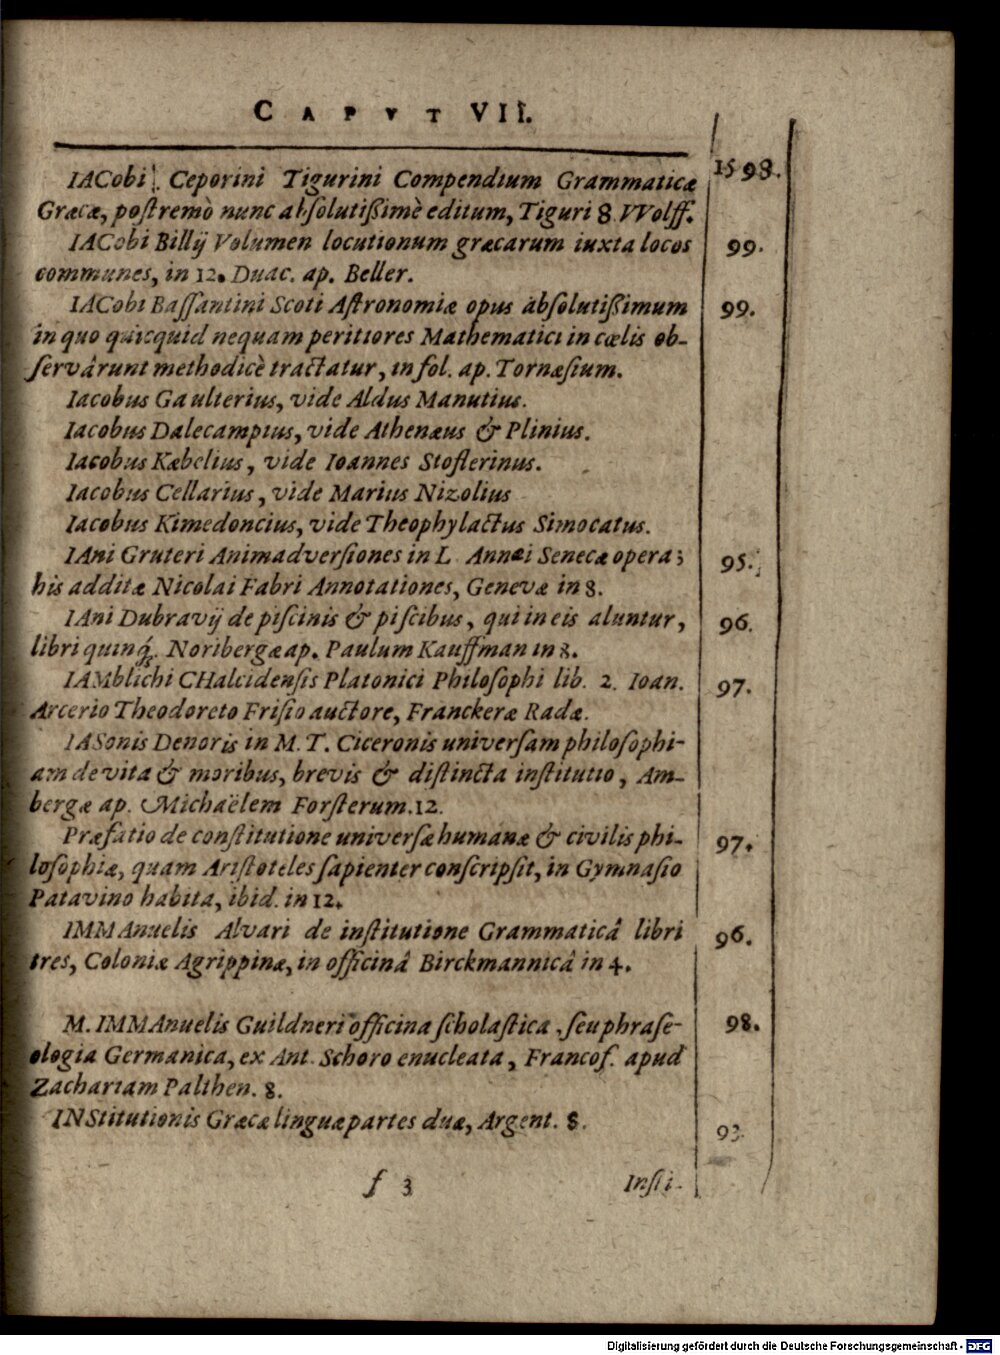 CAPVT VII.
IACobi Ceporini Tigurini Compendium Grammaticæ 1598.
Græcæ, postremò nunc absolutißimè editum, Tiguri 8. VVolff.
IACobi Billij Volumen locutionum græcarum iuxta locos 99.
communes, in 12. Duac. ap. Beller.
IACobi Bassantini Scoti Astronomiæ opus absolutißimum 99.
in quo quicquid nequam peritiores Mathematici in cœlis ob-
servârunt methodicè tractatur, in fol. ap. Tornæsium.
Iacobus Gaulterius, vide Aldus Manutius.
Iacobus Dalecampius, vide Athenæus & Plinius.
Iacobus Kæbelius, vide Ioannes Stoflerinus.
Iacobus Cellarius, vide Marius Nizolius
Iacobus Kimedoncius, vide Theophylactus Simocatus.
IAni Gruteri Animadversiones in L. Annæi Senecæ opera; 95.
his additæ Nicolai Fabri Annotationes, Genevæ in 8.
IAni Dubravij de piscinis & piscibus, qui in eis aluntur, 96.
libri quinq́. Noribergæ ap. Paulum Kauffman in 8.
IAMblichi CHalcidensis Platonici Philosophi lib. 2. Ioan. 97.
Arcerio Theodoreto Frisio auctore, Franckeræ Radæ.
IASonis Denoris in M. T. Ciceronis universam philosophi-
am de vita & moribus, brevis & distincta institutio, Am-
bergæ ap. Michaëlem Forsterum. 12.
Præfatio de constitutione universæ humanæ & civilis phi- 97.
losophiæ, quam Aristoteles sapienter conscripsit, in Gymnasio
Patavino habita, ibid. in 12.
IMMAnuelis Alvari de institutione Grammaticâ libri 96.
tres, Coloniæ Agrippinæ, in officinâ Birckmannicâ in 4.
M. IMMAnuelis Guildneri officina scholastica, seu phrase- 98.
ologia Germanica, ex Ant. Schoro enucleata, Francof. apud
Zachariam Palthen. 8.
INStitutionis Græcæ linguæ partes duæ, Argent. 8. 93.
f 3 Insti-
Digitalisierung gefördert durch die Deutsche Forschungsgemeinschaft - DFG